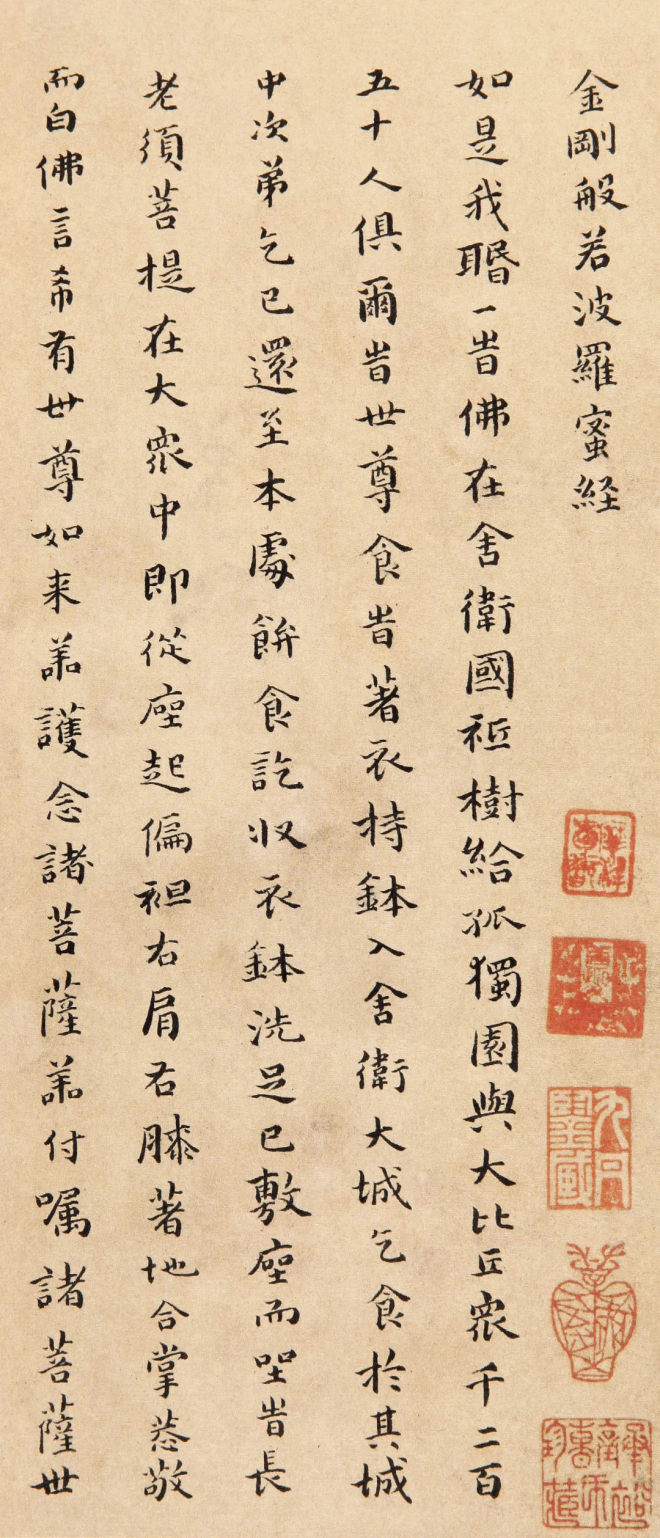 金剛般若波羅蜜経
如是我聞一旹佛在舍衛國祇樹給孤獨園與大比丘衆千二百
五十人俱爾旹世尊食旹著衣持鉢入舍衛大城乞食於其城
中次苐乞已還至本處餅食訖収衣鉢洗足已敷座而坐旹長
老須菩提在大衆中即從座起偏袒右肩右膝著地合掌恭敬
而白佛言希有世尊如来善護念諸菩薩善付嘱諸菩薩世